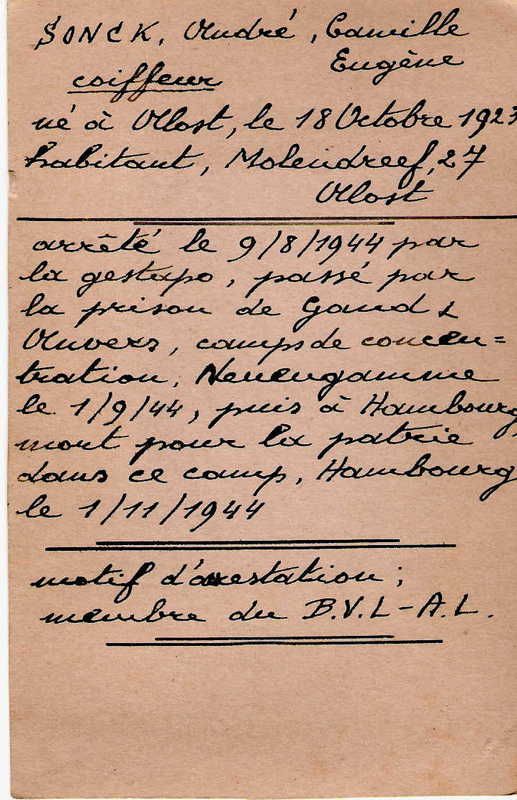 SONCK, André, Camille
Eugène
coiffeur
né à Alost, le 18 Octobre 1923
habitant, Molendreef, 27
Alost
arrêté le 9/8/1944 par
la gestapo, passé par
la prison de Gand &
Anvers, camps de concen=
tration, Neuengamme
le 1/9/44, puis à Hambourg,
mort pour la patrie
dans ce camp, Hambourg
le 1/11/1944
motif d'arrestation;
membre du B.V.L-A.L.